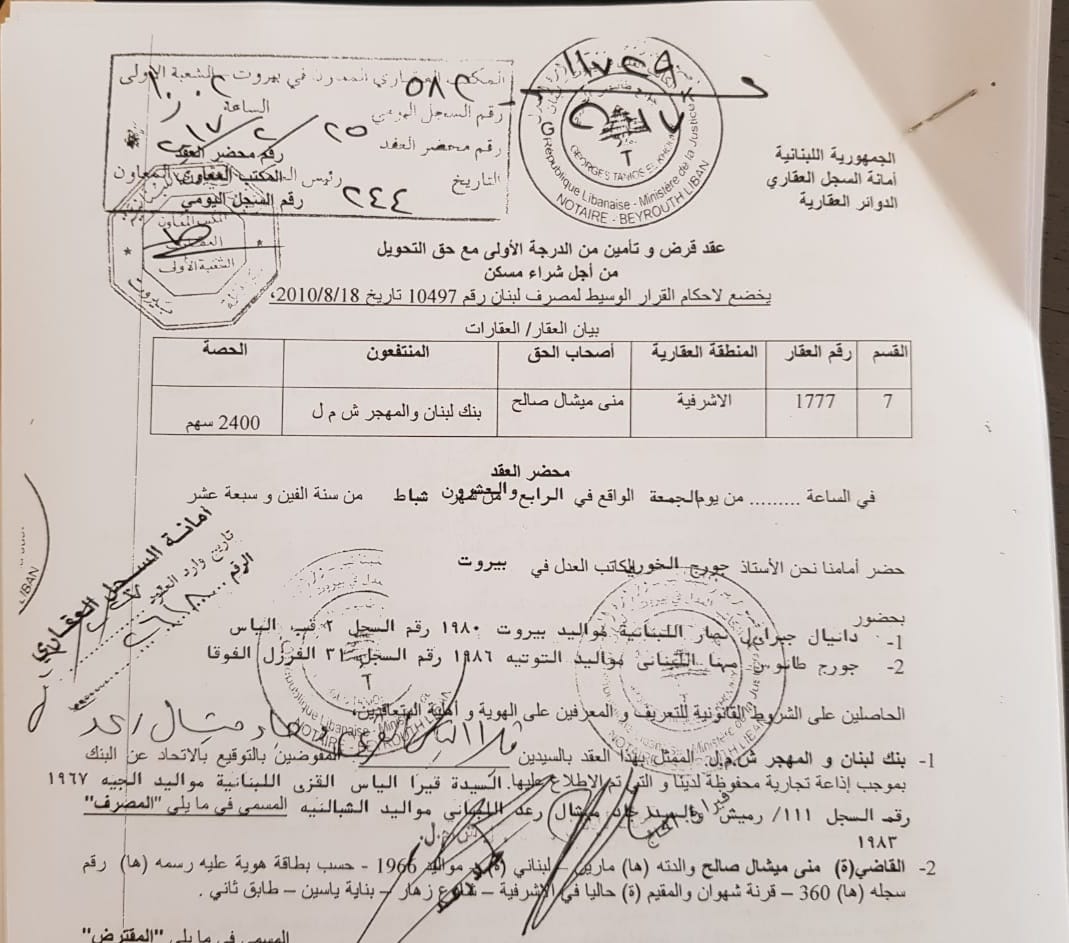 المكتب العقاري المعاون في بيروت - الشعبة الاولى
رقم السجل اليومي ٥٨٣ الساعة
رقم محضر العقد
التاريخ ٢٥/٢/٢٠١٧
رقم محضر العقد
المكتب المعاون
رقم السجل اليومي ٢٤٤
المكتب المعاون
العقاري
الشعبة الأولى
بيروت
GEORGES TANIOS EL KHOURY
République Libanaise - Ministère de la Justice
NOTAIRE - BEYROUTH LIBAN
الجمهورية اللبنانية
أمانة السجل العقاري
الدوائر العقارية
عقد قرض و تأمين من الدرجة الأولى مع حق التحويل
من أجل شراء مسكن
يخضع لاحكام القرار الوسيط لمصرف لبنان رقم 10497 تاريخ 2010/8/18،
بيان العقار/ العقارات
القسم رقم العقار المنطقة العقارية أصحاب الحق المنتفعون الحصة
7 1777 الاشرفية منى ميشال صالح بنك لبنان والمهجر ش م ل 2400 سهم
محضر العقد
في الساعة ......... من يوم الجمعة الواقع في الرابع والعشرون من شهر شباط من سنة الفين و سبعة عشر
أمانة السجل العقاري
تاريخ وارد العقد
الرقم
LIBAN
حضر أمامنا نحن الأستاذ جورج الخوري الكاتب العدل في بيروت
بحضور
1- دانيال جبرايل نصار اللبنانية مواليد بيروت ١٩٨٠ رقم السجل ٢ قب الياس
2- جورج طانوس مهنا اللبناني مواليد التوتيه ١٩٨٦ رقم السجل ٣١ الفرزل الفوقا
الحاصلين على الشروط القانونية للتعريف و المعرفين على الهوية و أهلية المتعاقدين،
République Libanaise - Ministère
NOTAIRE - BEYROUTH LIBAN
1- بنك لبنان و المهجر ش.م.ل. الممثل بهذا العقد بالسيدين المفوضين بالتوقيع بالاتحاد عن البنك
بموجب إذاعة تجارية محفوظة لدينا و التي تم الاطلاع عليها. السيدة فيرا الياس القزي اللبنانية مواليد الجيه ١٩٦٧
رقم السجل ١١١/ رميش والسيد جاد ميشال رعد اللبناني مواليد الشبانيه المسمى في ما يلي "المصرف"
١٩٨٣
2- القاضي(ة) منى ميشال صالح والدته (ها) مارين – لبناني (ة) – مواليد 1966 - حسب بطاقة هوية عليه رسمه (ها) رقم
سجله (ها) 360 – قرنة شهوان والمقيم (ة) حاليا في الاشرفية – شارع زهار – بناية ياسين – طابق ثاني .
المسمى في ما يلي "المقترض"